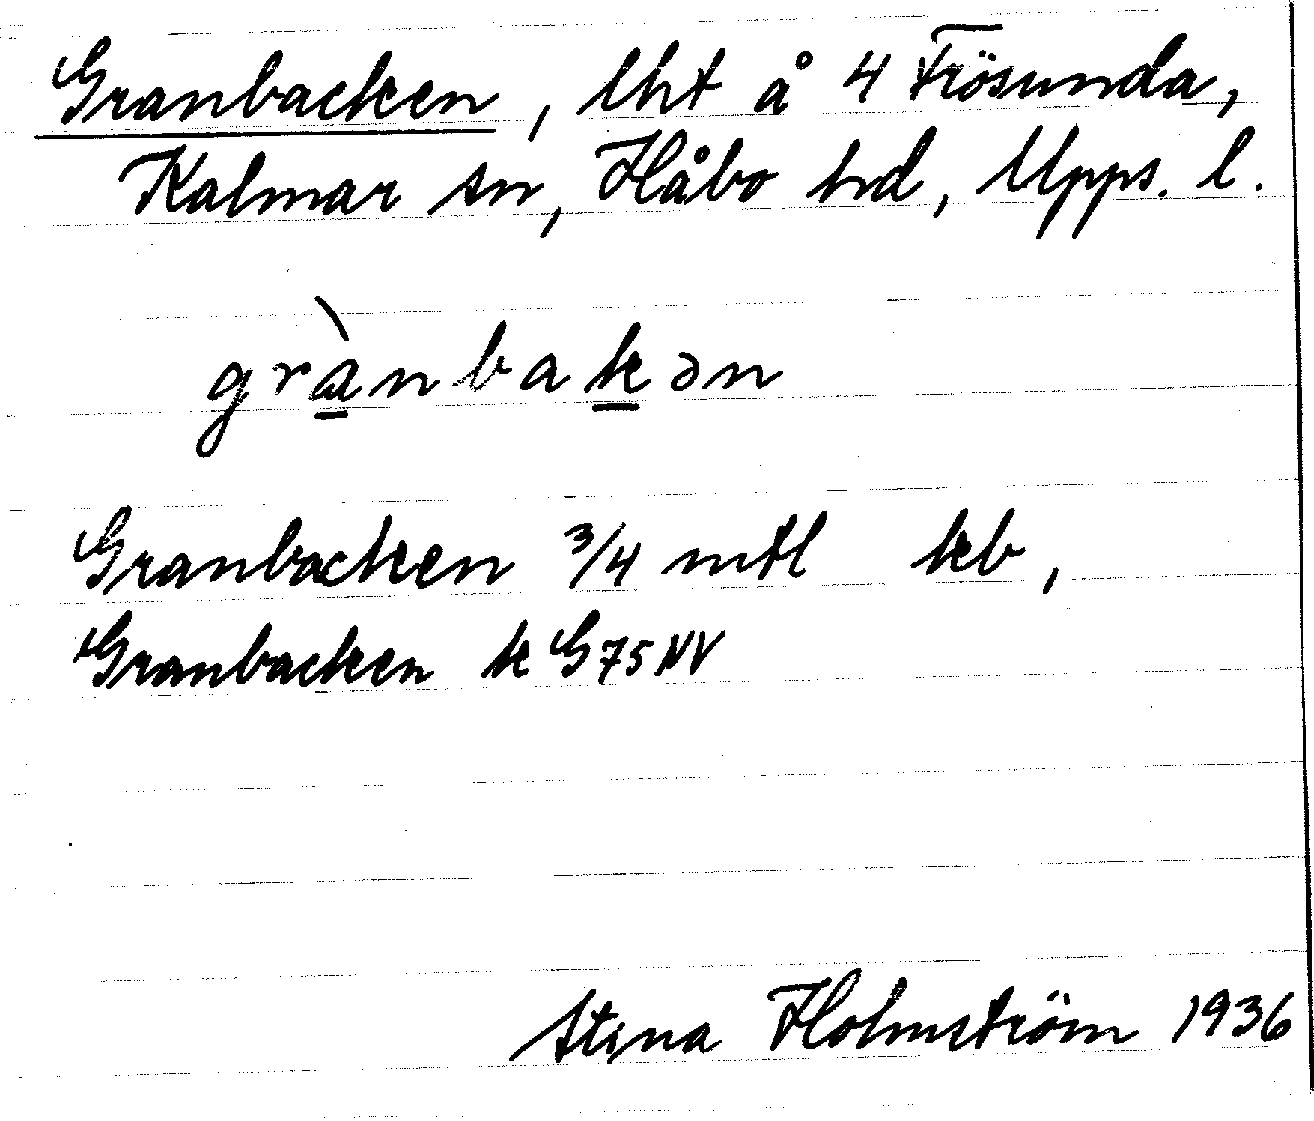 Granbacken, lht å 4 Frösunda,
Kalmar sn, Håbo hd, Upps. l.
grànbakən
Granbacken 3/4 mtl kb,
Granbacken k G 75 NV
Stina Holmström 1936